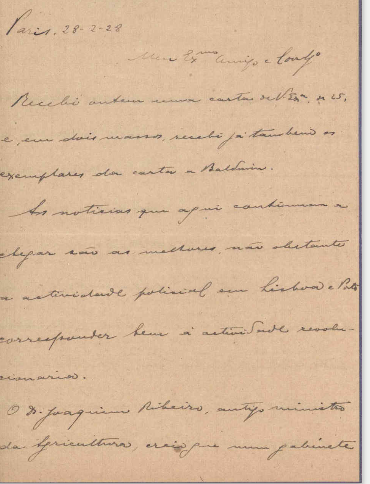 Paris, 28-2-28
Meu Exmo Amigo e Colega
Recebi ontem uma carta de V. Exa, de 25,
e, em dois massos, recebi já tambem os
exemplares da carta a Balduin.
As noticias que aqui continuam a
chegar são as melhores, não obstante
a actividade policial em Lisboa e Porto
corresponder bem á actividade revolu-
cionaria.
O Dr. Joaquim Ribeiro, antigo ministro
da Agricultura, creio que num gabinete